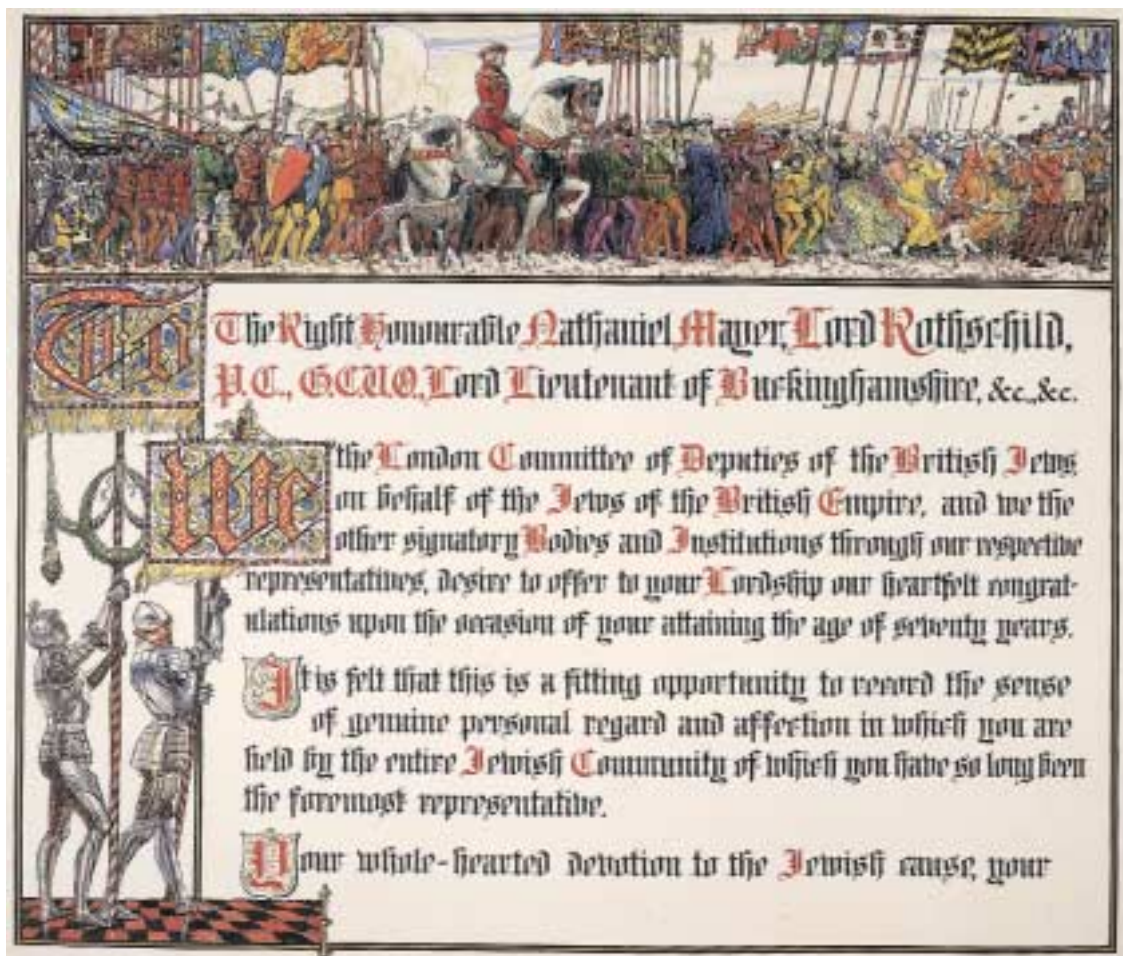 To
The Right Honourable Nathaniel Mayer, Lord Rothschild,
P.C., G.C.V.O., Lord Lieutenant of Buckinghamshire, &c., &c.
We the London Committee of Deputies of the British Jews
on behalf of the Jews of the British Empire, and we the
other signatory Bodies and Institutions through our respective
representatives, desire to offer to your Lordship our heartfelt congrat-
ulations upon the occasion of your attaining the age of seventy years.
It is felt that this is a fitting opportunity to record the sense
of genuine personal regard and affection in which you are
held by the entire Jewish Community of which you have so long been
the foremost representative.
Your whole-hearted devotion to the Jewish cause, your